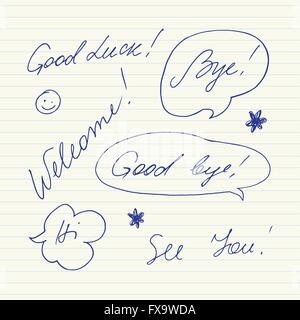 Good Luck!
Bye!
Welcome!
Good bye!
Hi
See You!
alamy
Image ID: FX9WDA
www.alamy.com